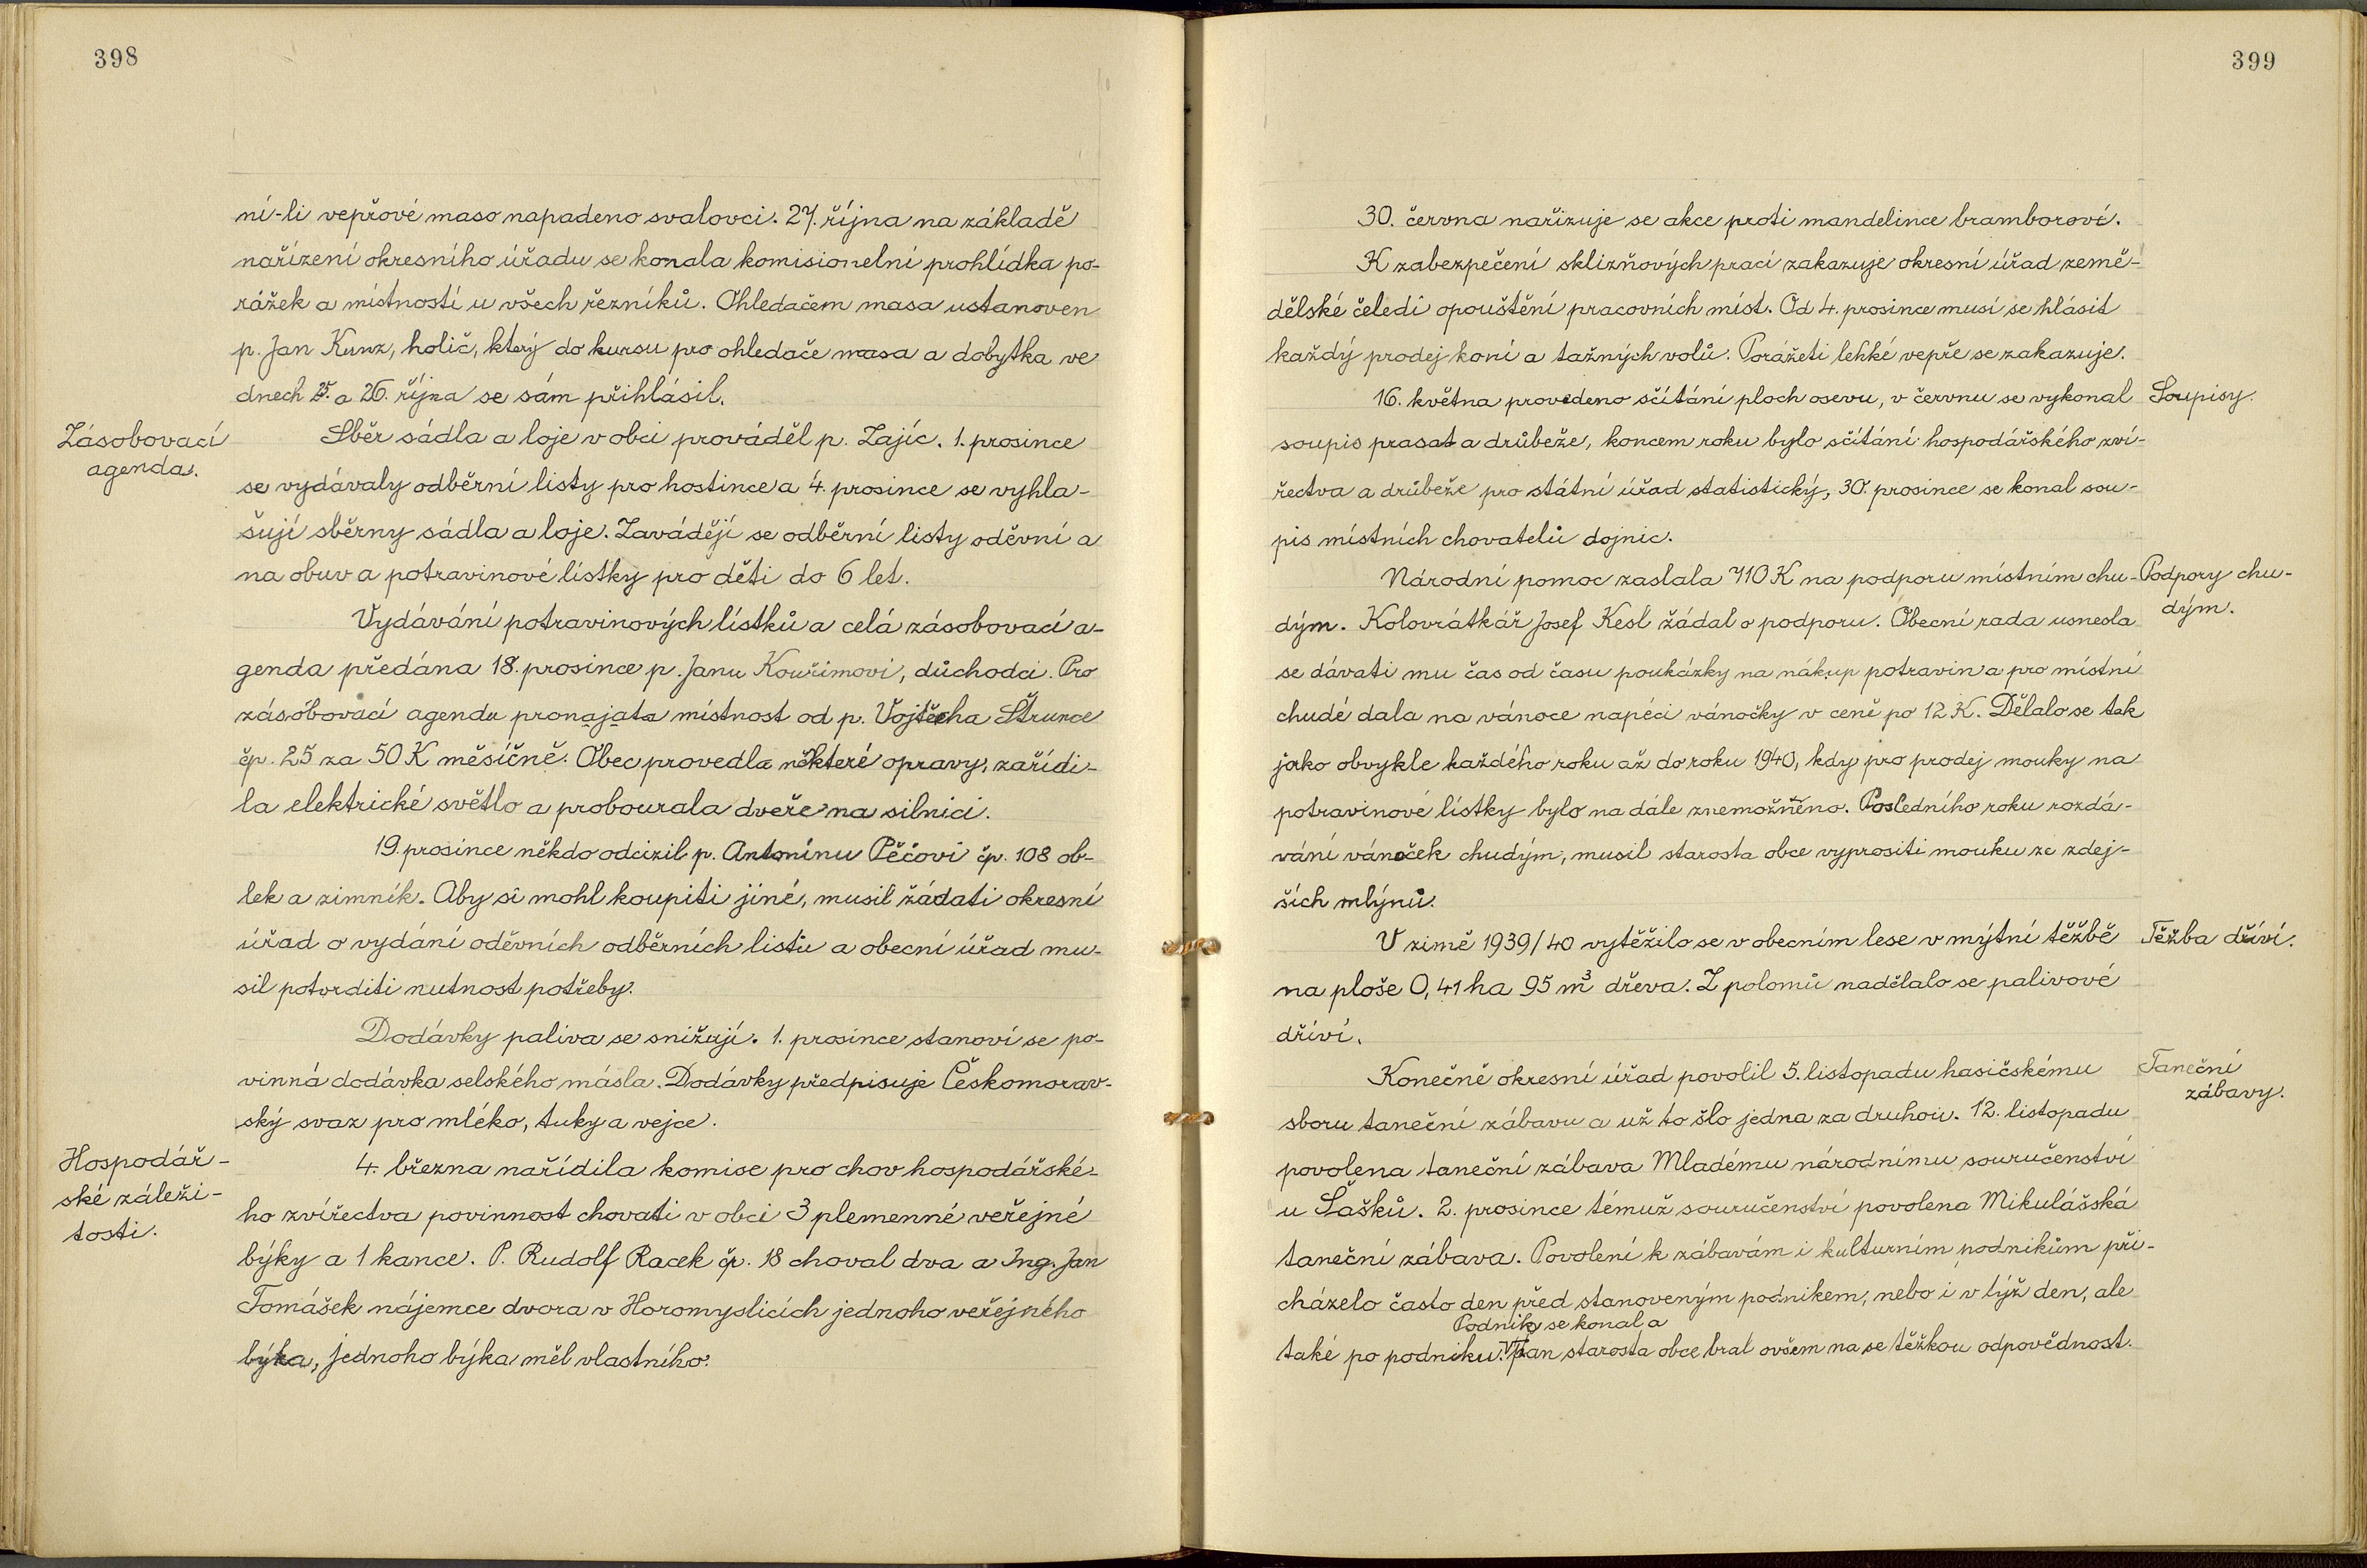 398
ní-li vepřové maso napadeno svalovci. 27. října na základě
nařízení okresního úřadu se konala komisionelní prohlídka po-
rážek a místností u všech řezníků. Ohledačem masa ustanoven
p. Jan Kunz, holič, který do kursu pro ohledače masa a dobytka ve
dnech 25. a 26. října se sám přihlásil.
Zásobovací
agenda.
Sběr sádla a loje v obci prováděl p. Zajíc. 1. prosince
se vydávaly odběrní listy pro hostince a 4. prosince se vyhla-
šují sběrny sádla a loje. Zavádějí se odběrní listy oděvní a
na obuv a potravinové lístky pro děti do 6 let.
Vydávání potravinových lístků a celá zásobovací a-
genda předána 18. prosince p. Janu Kouřimovi, důchodci. Pro
zásobovací agendu pronajata místnost od p. Vojtěcha Štrunce
čp. 25 za 50 K měsíčně. Obec provedla některé opravy, zařídi-
la elektrické světlo a probourala dveře na silnici.
19. prosince někdo odcizil p. Antonínu Pěčovi čp. 108 ob-
lek a zimník. Aby si mohl koupiti jiné, musil žádati okresní
úřad o vydání oděvních odběrních listů a obecní úřad mu-
sil potvrditi nutnost potřeby.
Dodávky paliva se snižují. 1. prosince stanoví se po-
vinná dodávka selského másla. Dodávky předpisuje Českomorav-
ský svaz pro mléko, tuky a vejce.
Hospodář-
ské záleži-
tosti.
4. března nařídila komise pro chov hospodářské-
ho zvířectva povinnost chovati v obci 3 plemenné veřejné
býky a 1 kance. P. Rudolf Racek čp. 18 choval dva a Ing. Jan
Tomášek nájemce dvora v Horomyslicích jednoho veřejného
býka, jednoho býka měl vlastního.
399
30. června nařizuje se akce proti mandelince bramborové.
K zabezpečení sklizňových prací zakazuje okresní úřad země-
dělské čeledi opouštění pracovních míst. Od 4. prosince musí se hlásit
každý prodej koní a tažných volů. Porážeti lehké vepře se zakazuje.
16. května provedeno sčítání ploch osevu, v červnu se vykonal
Soupisy.
soupis prasat a drůbeže, koncem roku bylo sčítání hospodářského zví-
řectva a drůbeže pro státní úřad statistický, 30. prosince se konal sou-
pis místních chovatelů dojnic.
Národní pomoc zaslala 710 K na podporu místním chu-
Podpory chu-
dým.
dým. Kolovrátkář Josef Kesl žádal o podporu. Obecní rada usnesla
se dávati mu čas od času poukázky na nákup potravin a pro místní
chudé dala na vánoce napéci vánočky v ceně po 12 K. Dělalo se tak
jako obvykle každého roku až do roku 1940, kdy pro prodej mouky na
potravinové lístky bylo na dále znemožněno. Posledního roku rozdá-
vání vánoček chudým, musil starosta obce vyprositi mouku ze zdej-
ších mlýnů.
V zimě 1939/40 vytěžilo se v obecním lese v mýtní těžbě
Těžba dříví.
na ploše 0,41 ha 95 m³ dřeva. Z polomů nadělalo se palivové
dříví.
Konečně okresní úřad povolil 5. listopadu hasičskému
Taneční
zábavy.
sboru taneční zábavu a už to šlo jedna za druhou. 12. listopadu
povolena taneční zábava Mladému národnímu souručenství
u Šašků. 2. prosince témuž souručenství povolena Mikulášská
taneční zábava. Povolení k zábavám i kulturním podnikům při-
cházelo často den před stanoveným podnikem, nebo i v týž den, ale
Podniky se konal a
také po podniku. pan starosta obce bral ovšem na se těžkou odpovědnost.